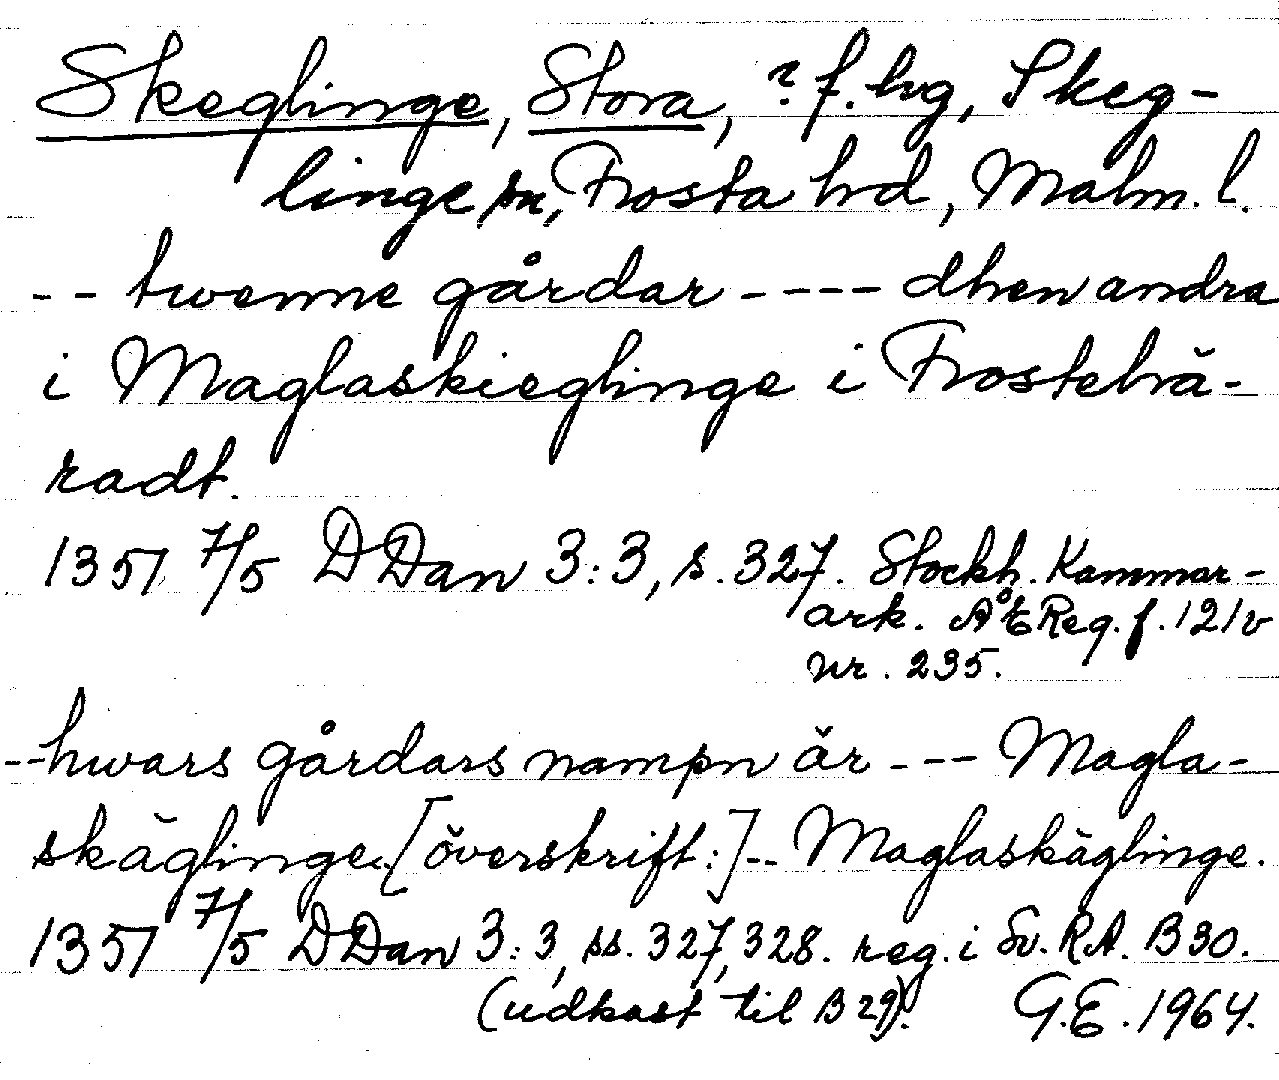 Skeglinge, Stora, ? f. hg, Skeg-
linge sn, Frosta hd, Malm. l.
-- twenne gårdar ---- dhen andra
i Maglaskieglinge i Frostehä-
radt.
1351 7/5 DDan 3:3, s. 327. Stockh. Kammar-
ark. ÅÆReg. f. 121v
nr. 235.
--hwars gårdars nampn är --- Magla-
skäglinge. [överskrift:]-- Maglaskäglinge.
1351 7/5 DDan 3:3, ss. 327, 328. reg. i Sv. RA. B 30.
(udkast til B 29). G.E. 1964.